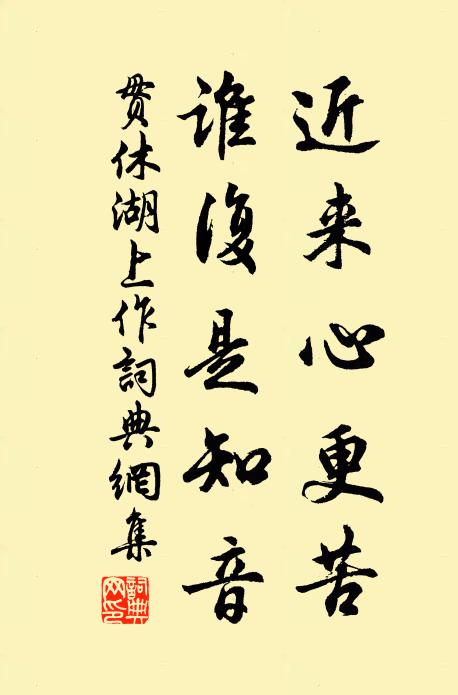 近来心更苦
誰復是知音
貫休湖上作詞典網集
詞典網印